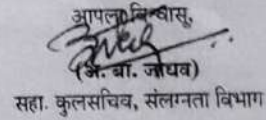 आपला विश्वासू,
(अ. बा. जाधव)
सहा. कुलसचिव, संलग्नता विभाग